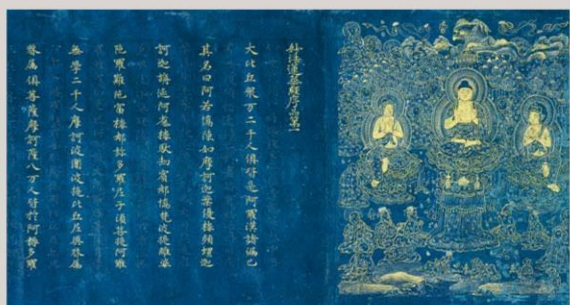 妙法蓮華經序品第一
大比丘眾万二千人俱皆是阿羅漢諸漏已
其名曰阿若憍陳如摩訶迦葉優樓頻螺迦
訶迦旃延阿㝹樓馱劫賓那憍梵波提離婆
陀羅難陀富樓那彌多羅尼子須菩提阿難
無學二千人摩訶波闍波提比丘尼與眷屬
眷屬俱菩薩摩訶薩八万人皆於阿耨多羅